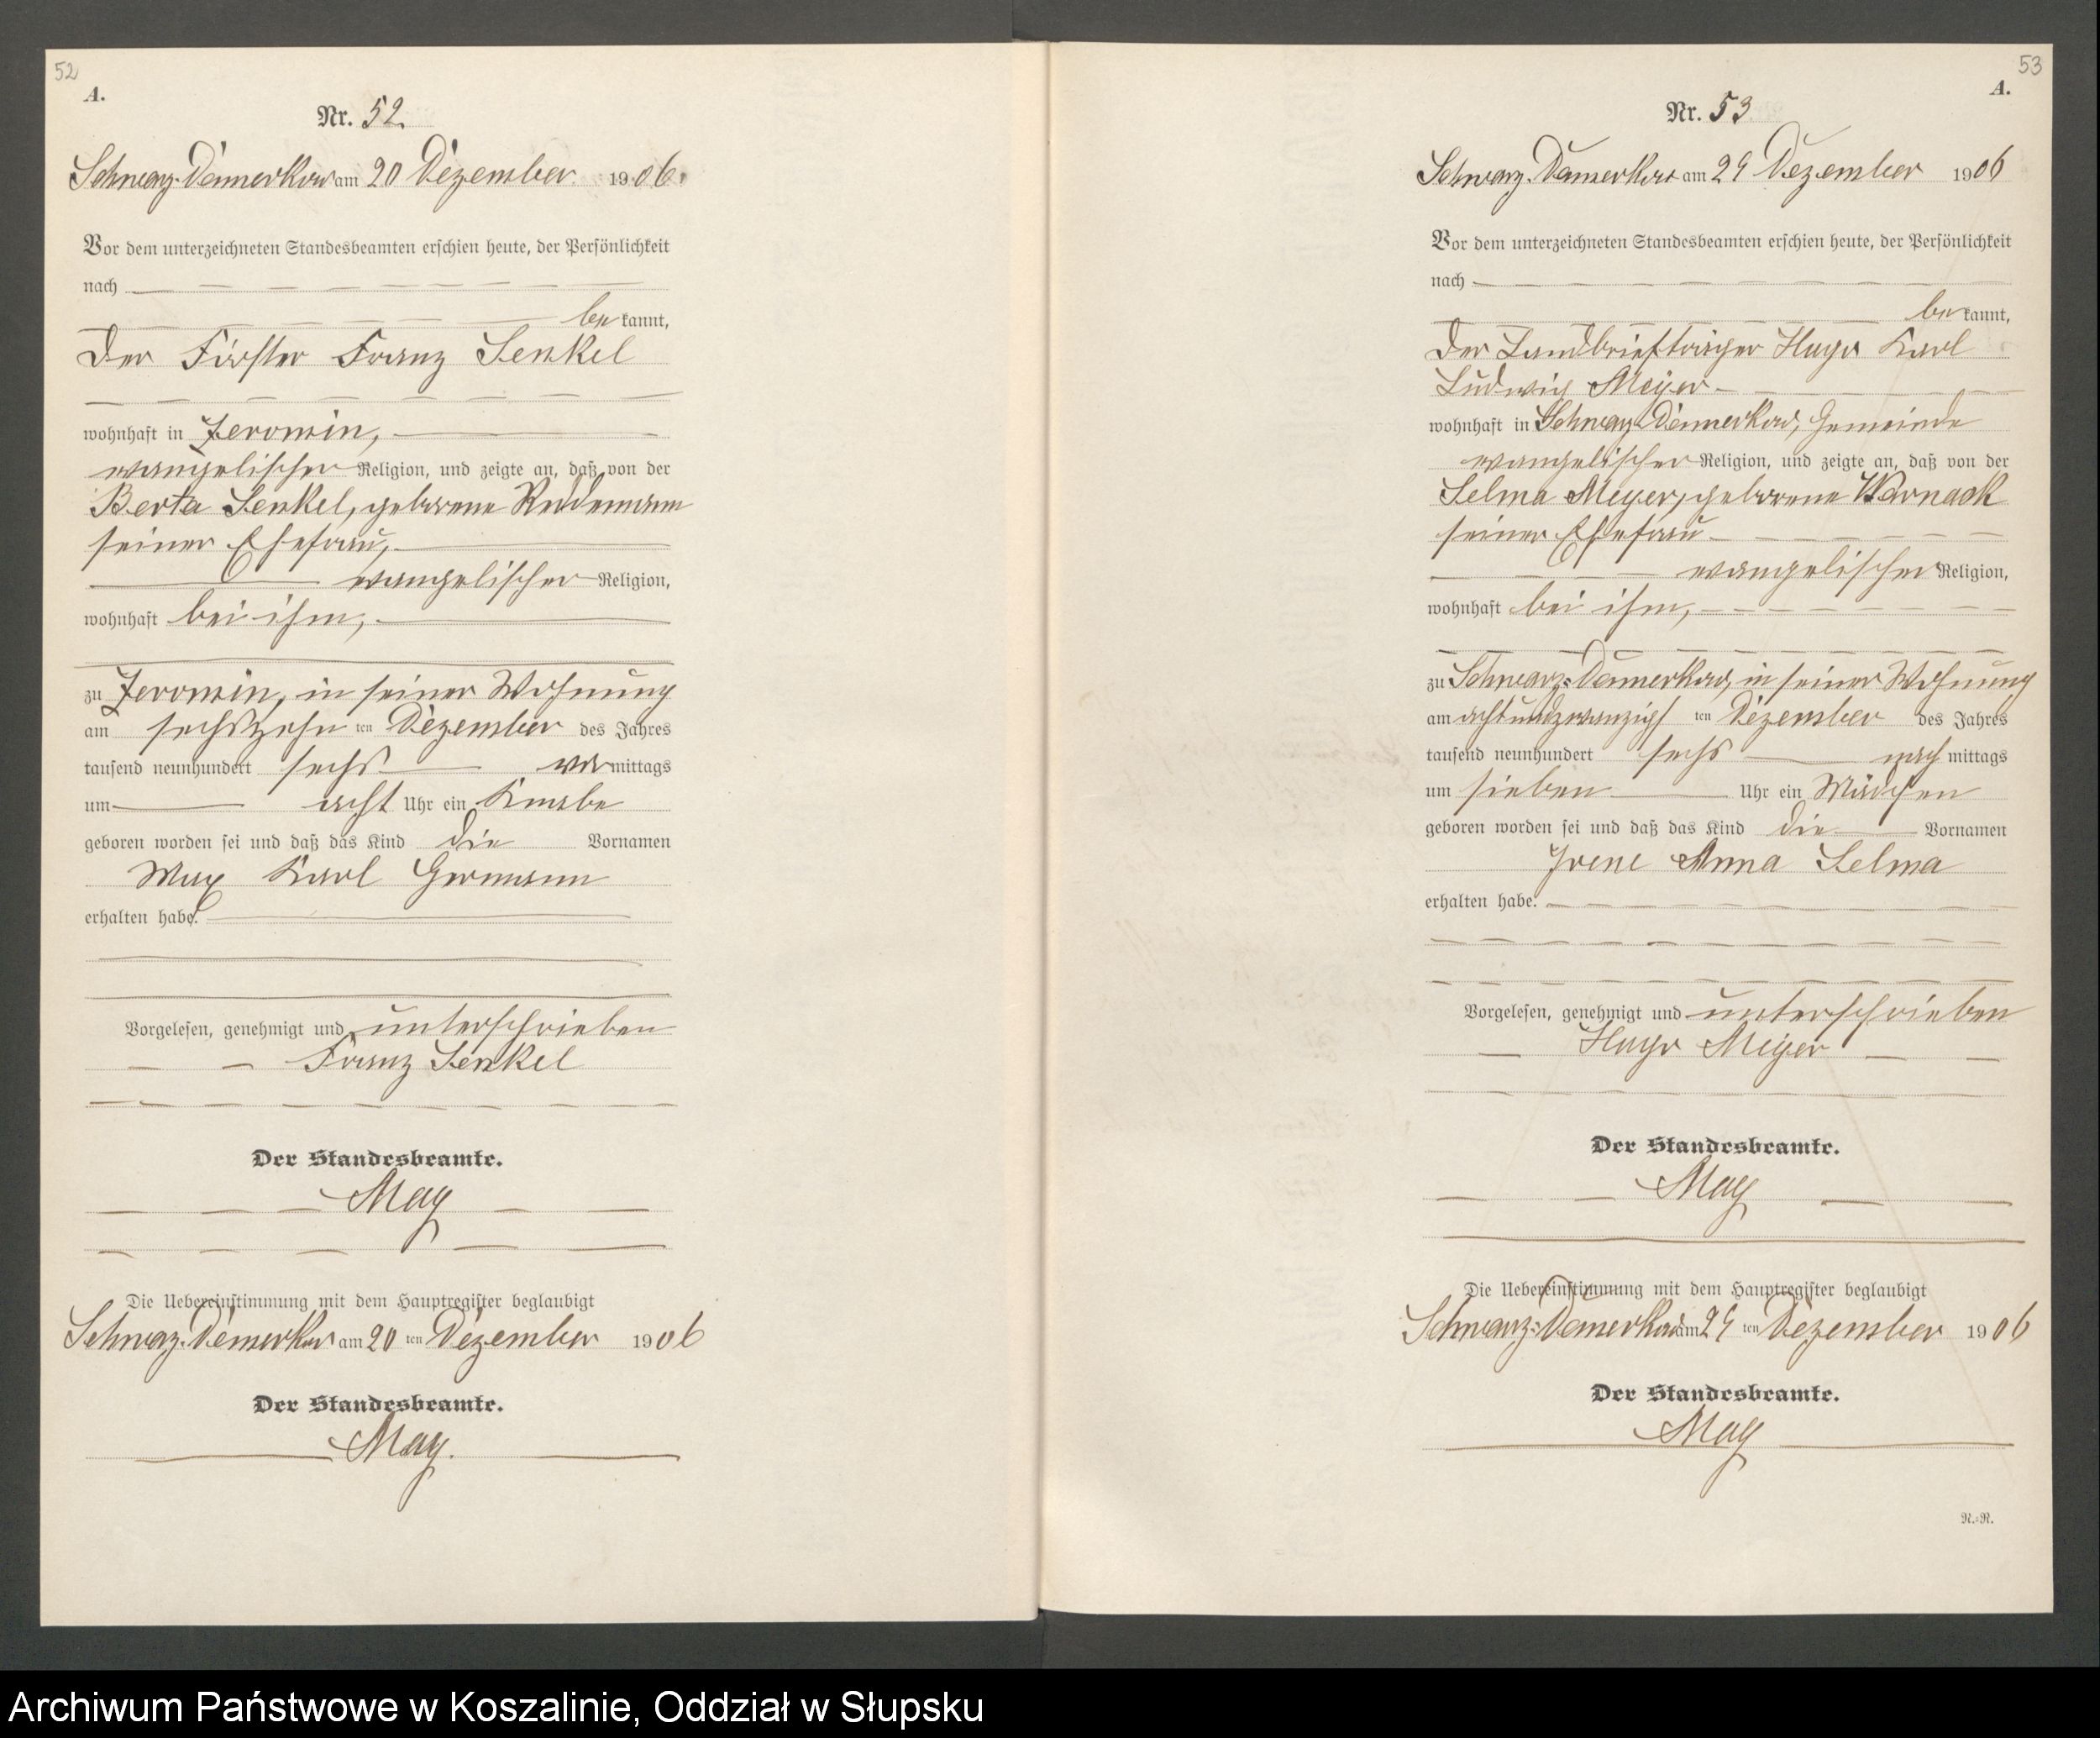 52
A.
Nr. 52.
Schwarz-Damerkow am 20 Dezember 1906.
Vor dem unterzeichneten Standesbeamten erschien heute, der Persönlichkeit
nach
bekannt,
der Förster Franz Senkel
wohnhaft in Jeromin,
evangelischer Religion, und zeigte an, daß von der
Berta Senkel, geborene Redemann
seiner Ehefrau,
evangelischer Religion,
wohnhaft bei ihm,
zu Jeromin, in seiner Wohnung
am sechszehn ten Dezember des Jahres
tausend neunhundert sechs vormittags
um acht Uhr ein Knabe
geboren worden sei und daß das Kind die Vornamen
Max Karl Germann
erhalten habe.
Vorgelesen, genehmigt und unterschrieben
Franz Senkel
Der Standesbeamte.
May
Die Uebereinstimmung mit dem Hauptregister beglaubigt
Schwarz-Damerkow am 20 ten Dezember 1906
Der Standesbeamte.
May.
53
A.
Nr. 53
Schwarz-Damerkow am 29 Dezember 1906
Vor dem unterzeichneten Standesbeamten erschien heute, der Persönlichkeit
nach
bekannt,
der Landbriefträger Hugo Karl
Ludwig Meyer
wohnhaft in Schwarz-Damerkow, Gemeinde
evangelischer Religion, und zeigte an, daß von der
Selma Meyer, geborene Warnack
seiner Ehefrau
evangelischer Religion,
wohnhaft bei ihm,
zu Schwarz-Damerkow, in seiner Wohnung
am achtundzwanzigs ten Dezember des Jahres
tausend neunhundert sechs nachmittags
um sieben Uhr ein Mädchen
geboren worden sei und daß das Kind die Vornamen
Irene Anna Selma
erhalten habe.
Vorgelesen, genehmigt und unterschrieben
Hugo Meyer
Der Standesbeamte.
May
Die Uebereinstimmung mit dem Hauptregister beglaubigt
Schwarz-Damerkow am 29 ten Dezember 1906
Der Standesbeamte.
May
N.=R.
Archiwum Państwowe w Koszalinie, Oddział w Słupsku